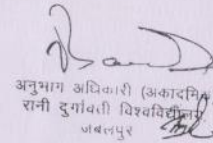 अनुभाग अधिकारी (अकादमिक
रानी दुर्गावती विश्वविद्यालय
जबलपुर